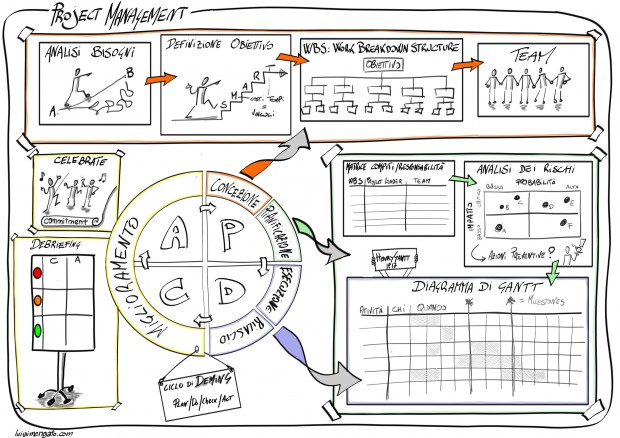 PROJECT MANAGEMENT
ANALISI BISOGNI
A
B
DEFINIZIONE OBIETTIVO
S
M
A
R
T
COSTI TEMPI
E
VINCOLI
WBS: WORK BREAKDOWN STRUCTURE
OBIETTIVO
TEAM
CELEBRATE
Commitment
DEBRIEFING
C A
MIGLIORAMENTO
CONCEZIONE
PIANIFICAZIONE
ESECUZIONE
RILASCIO
A P
C D
CICLO DI DEMING
PLAN/DO/CHECK/ACT
MATRICE COMPITI/RESPONSABILITÀ
WBS PROJECT LEADER TEAM
ANALISI DEI RISCHI
PROBABILITÀ
BASSA ALTA
IMPATTO
BASSO
B C D E
A F
AZIONI PREVENTIVE?
HENRY GANTT
1917
DIAGRAMMA DI GANTT
ATTIVITÀ CHI QUANDO
= MILESTONES
luigimengato.com